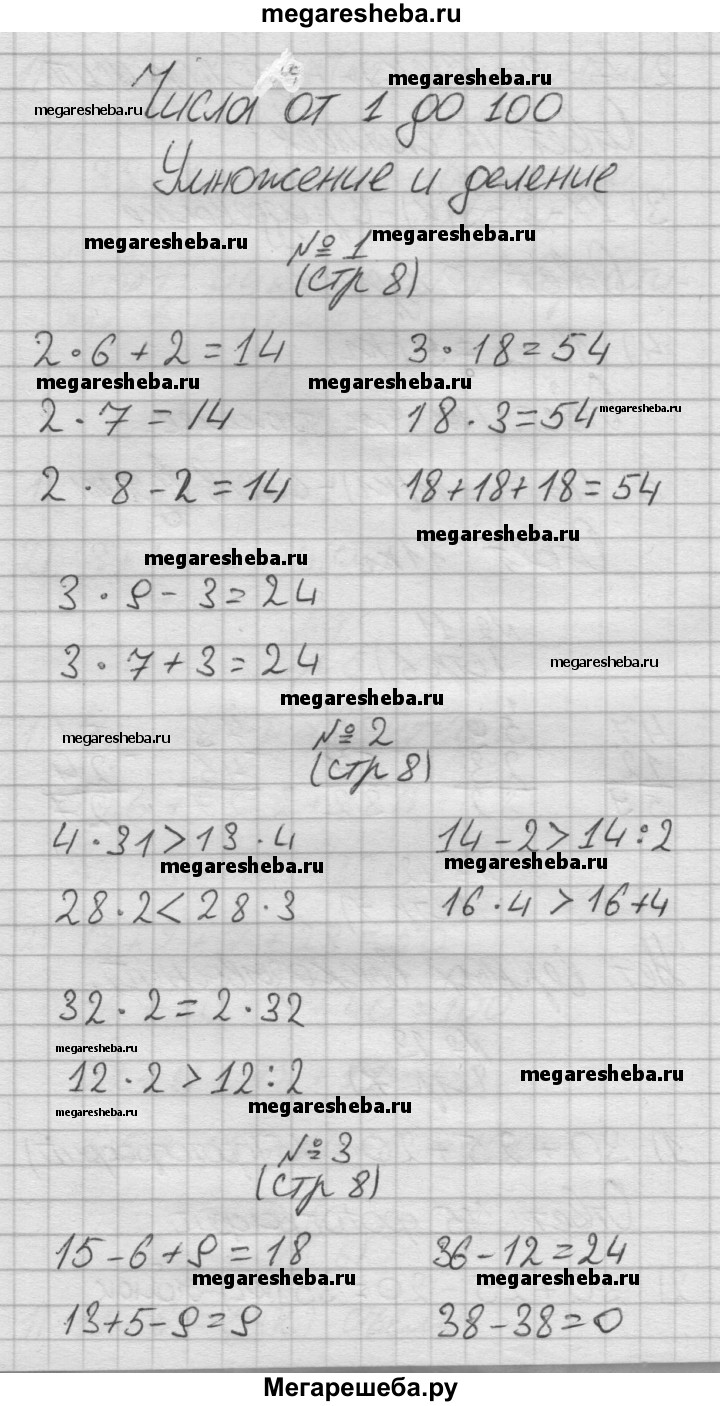 megaresheba.ru
megaresheba.ru
megaresheba.ru Числа от 1 до 100
Умножение и деление
megaresheba.ru № 1 megaresheba.ru
(стр 8)
2 · 6 + 2 = 14 3 · 18 = 54
megaresheba.ru megaresheba.ru
2 · 7 = 14 18 · 3 = 54 megaresheba.ru
2 · 8 - 2 = 14 18 + 18 + 18 = 54
megaresheba.ru
megaresheba.ru
3 · 9 - 3 = 24
3 · 7 + 3 = 24 megaresheba.ru
megaresheba.ru
megaresheba.ru № 2
(стр 8)
4 · 31 > 13 · 4 14 - 2 > 14 : 2
megaresheba.ru megaresheba.ru
28 · 2 < 28 · 3 16 · 4 > 16 + 4
32 · 2 = 2 · 32
megaresheba.ru
12 · 2 > 12 : 2 megaresheba.ru
megaresheba.ru megaresheba.ru
№ 3
(стр 8)
15 - 6 + 9 = 18 36 - 12 = 24
megaresheba.ru megaresheba.ru
13 + 5 - 9 = 9 38 - 38 = 0
Мегарешеба.ру